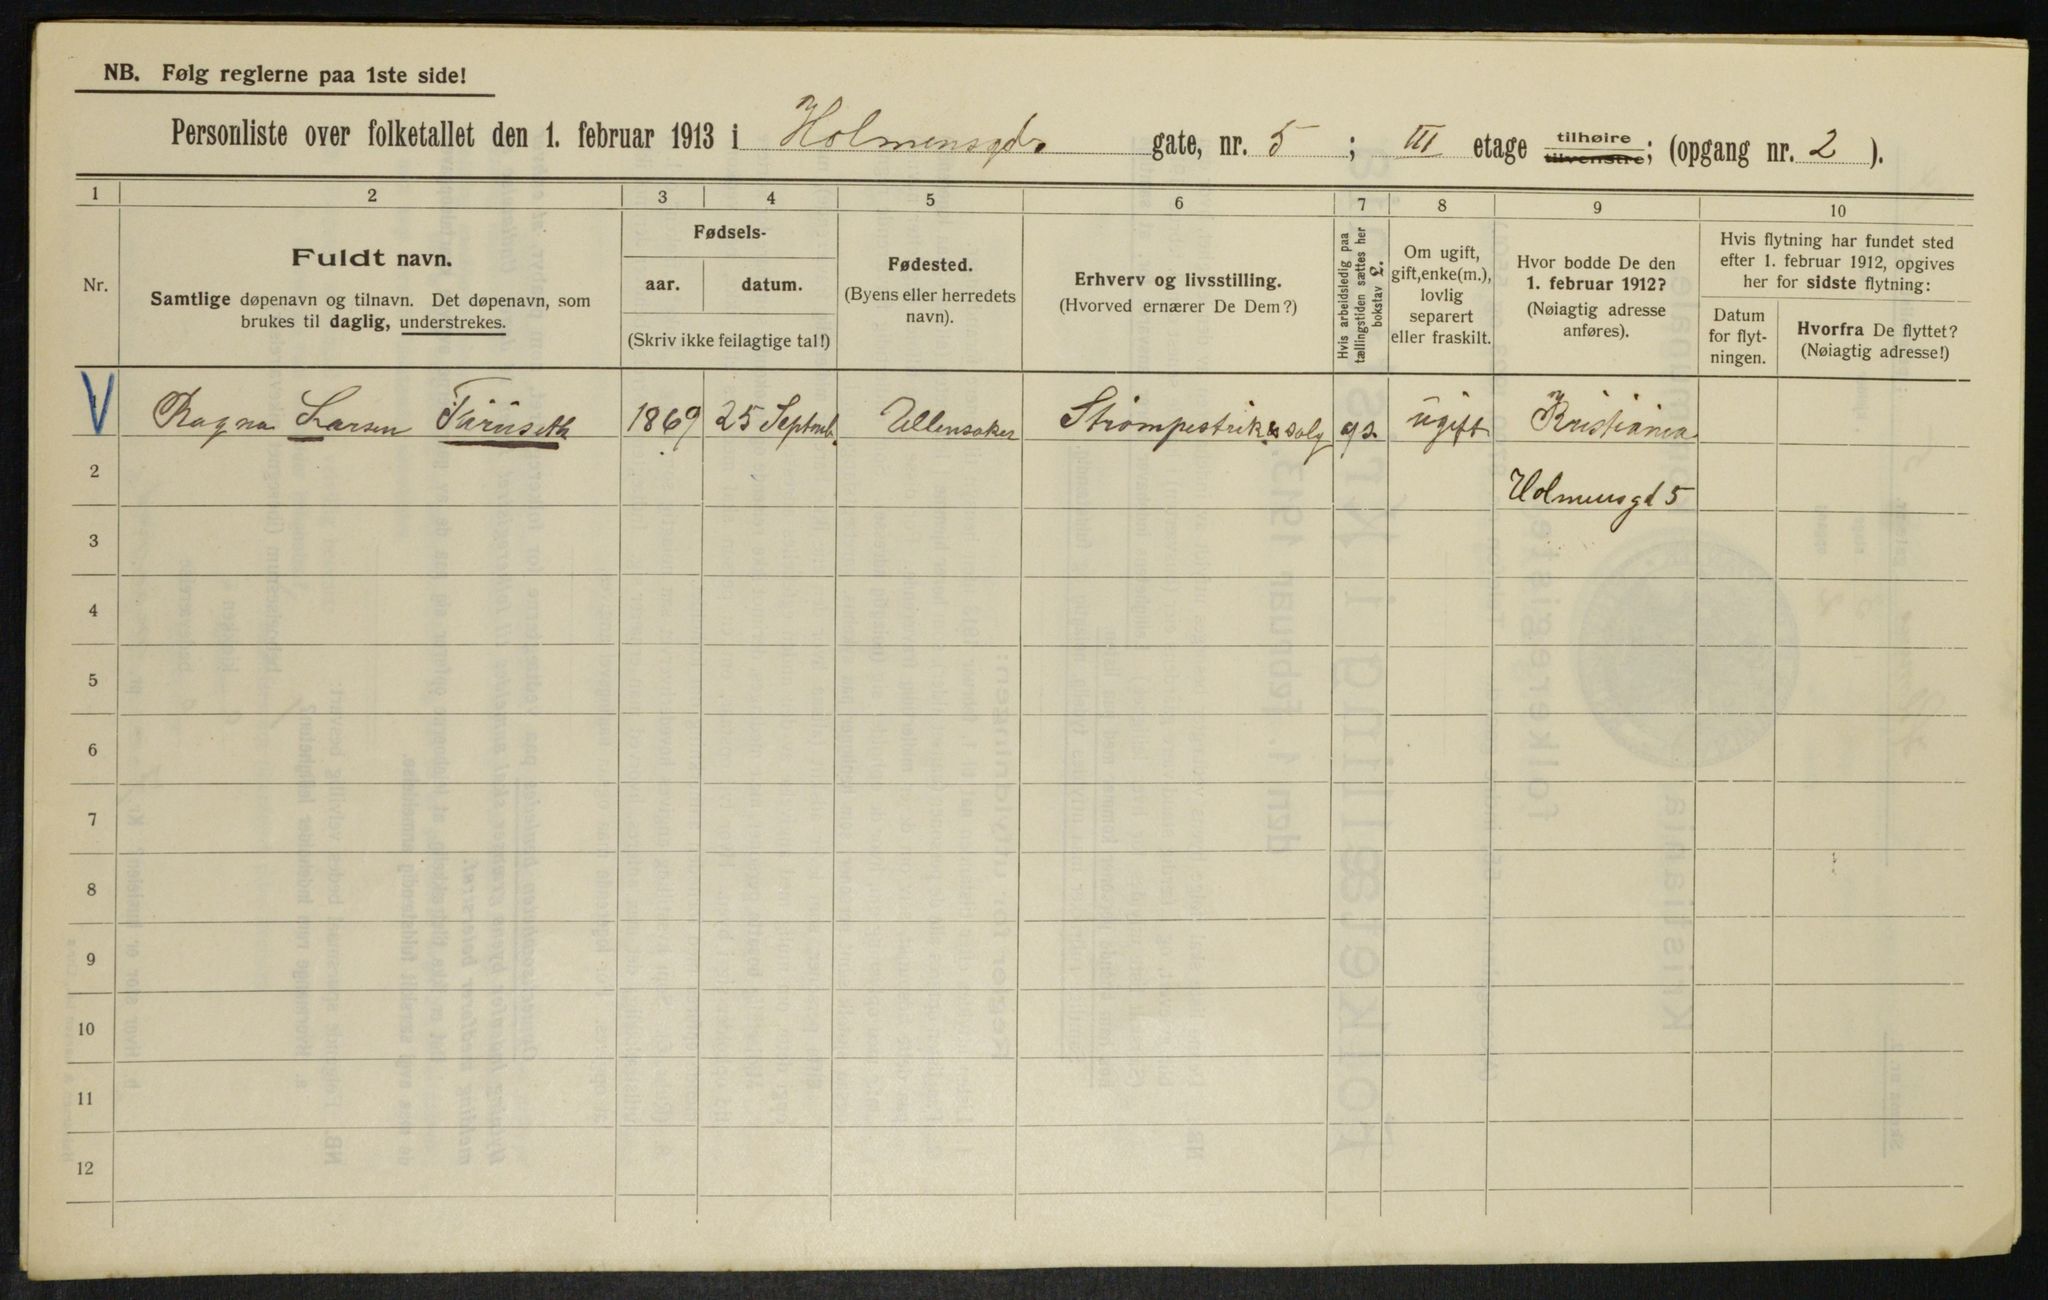 NB. Følg reglerne paa 1ste side!
Personliste over folketallet den 1. februar 1913 i Holmensgd. gate, nr. 5 ; III etage tilhøire tilvenstre; (opgang nr. 2 ).
1 2 3 4 5 6 7 8 9 10
Nr.
Fuldt navn.
Samtlige døpenavn og tilnavn. Det døpenavn, som
brukes til daglig, understrekes.
Fødsels-
aar. datum.
(Skriv ikke feilagtige tal!)
Fødested.
(Byens eller herredets
navn).
Erhverv og livsstilling.
(Hvorved ernærer De Dem?)
Hvis arbeidsledig paa
tællingstiden sættes her
bokstav L.
Om ugift,
gift, enke(m.),
lovlig
separert
eller fraskilt.
Hvor bodde De den
1. februar 1912?
(Nøiagtig adresse
anføres).
Hvis flytning har fundet sted
efter 1. februar 1912, opgives
her for sidste flytning:
Datum
for flyt-
ningen.
Hvorfra De flyttet?
(Nøiagtig adresse!)
1 Ragna Larsen 1869 25 Septmb. Ullensaker Strømpestrik & salg ugift Kristiania
2 Holmensgd 5
3
4
5
6
7
8
9
10
11
12